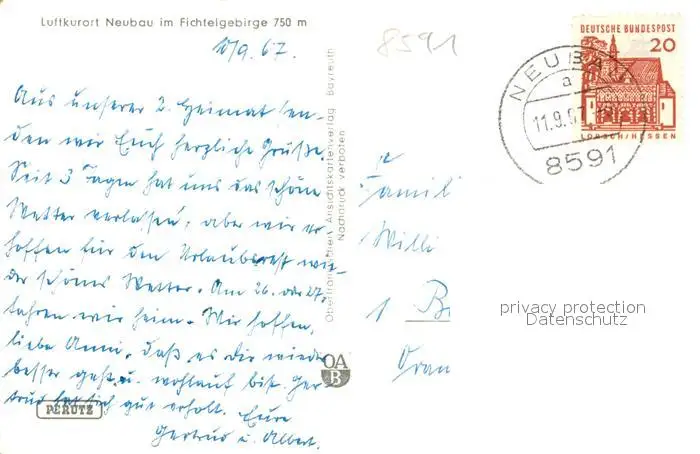 Luftkurort Neubau im Fichtelgebirge 750 m
10/9. 67.
8591
Aus unserer 2. Heimat sen-
den wir Euch herzliche Grüße.
Seit 3 Tagen hat uns das schöne
Wetter verlassen, aber wir er-
hoffen für den Urlaubsrest wie-
der schönes Wetter. Am 26. oder 27.
fahren wir heim. Wir hoffen,
liebe Anni, daß es dir wieder
besser geht u. wohlauf bist. Ger-
trud hat sich gut erholt. Eure
Gertrud u. Albert.
PERUTZ
Ansichtskartenverlag Bayreuth
Nachdruck verboten
OA
B
DEUTSCHE BUNDESPOST
20
LORSCH/HESSEN
NEUBAU
a
11.9.67
8591
Famili
Willi
1 B
Oran
privacy protection
Datenschutz